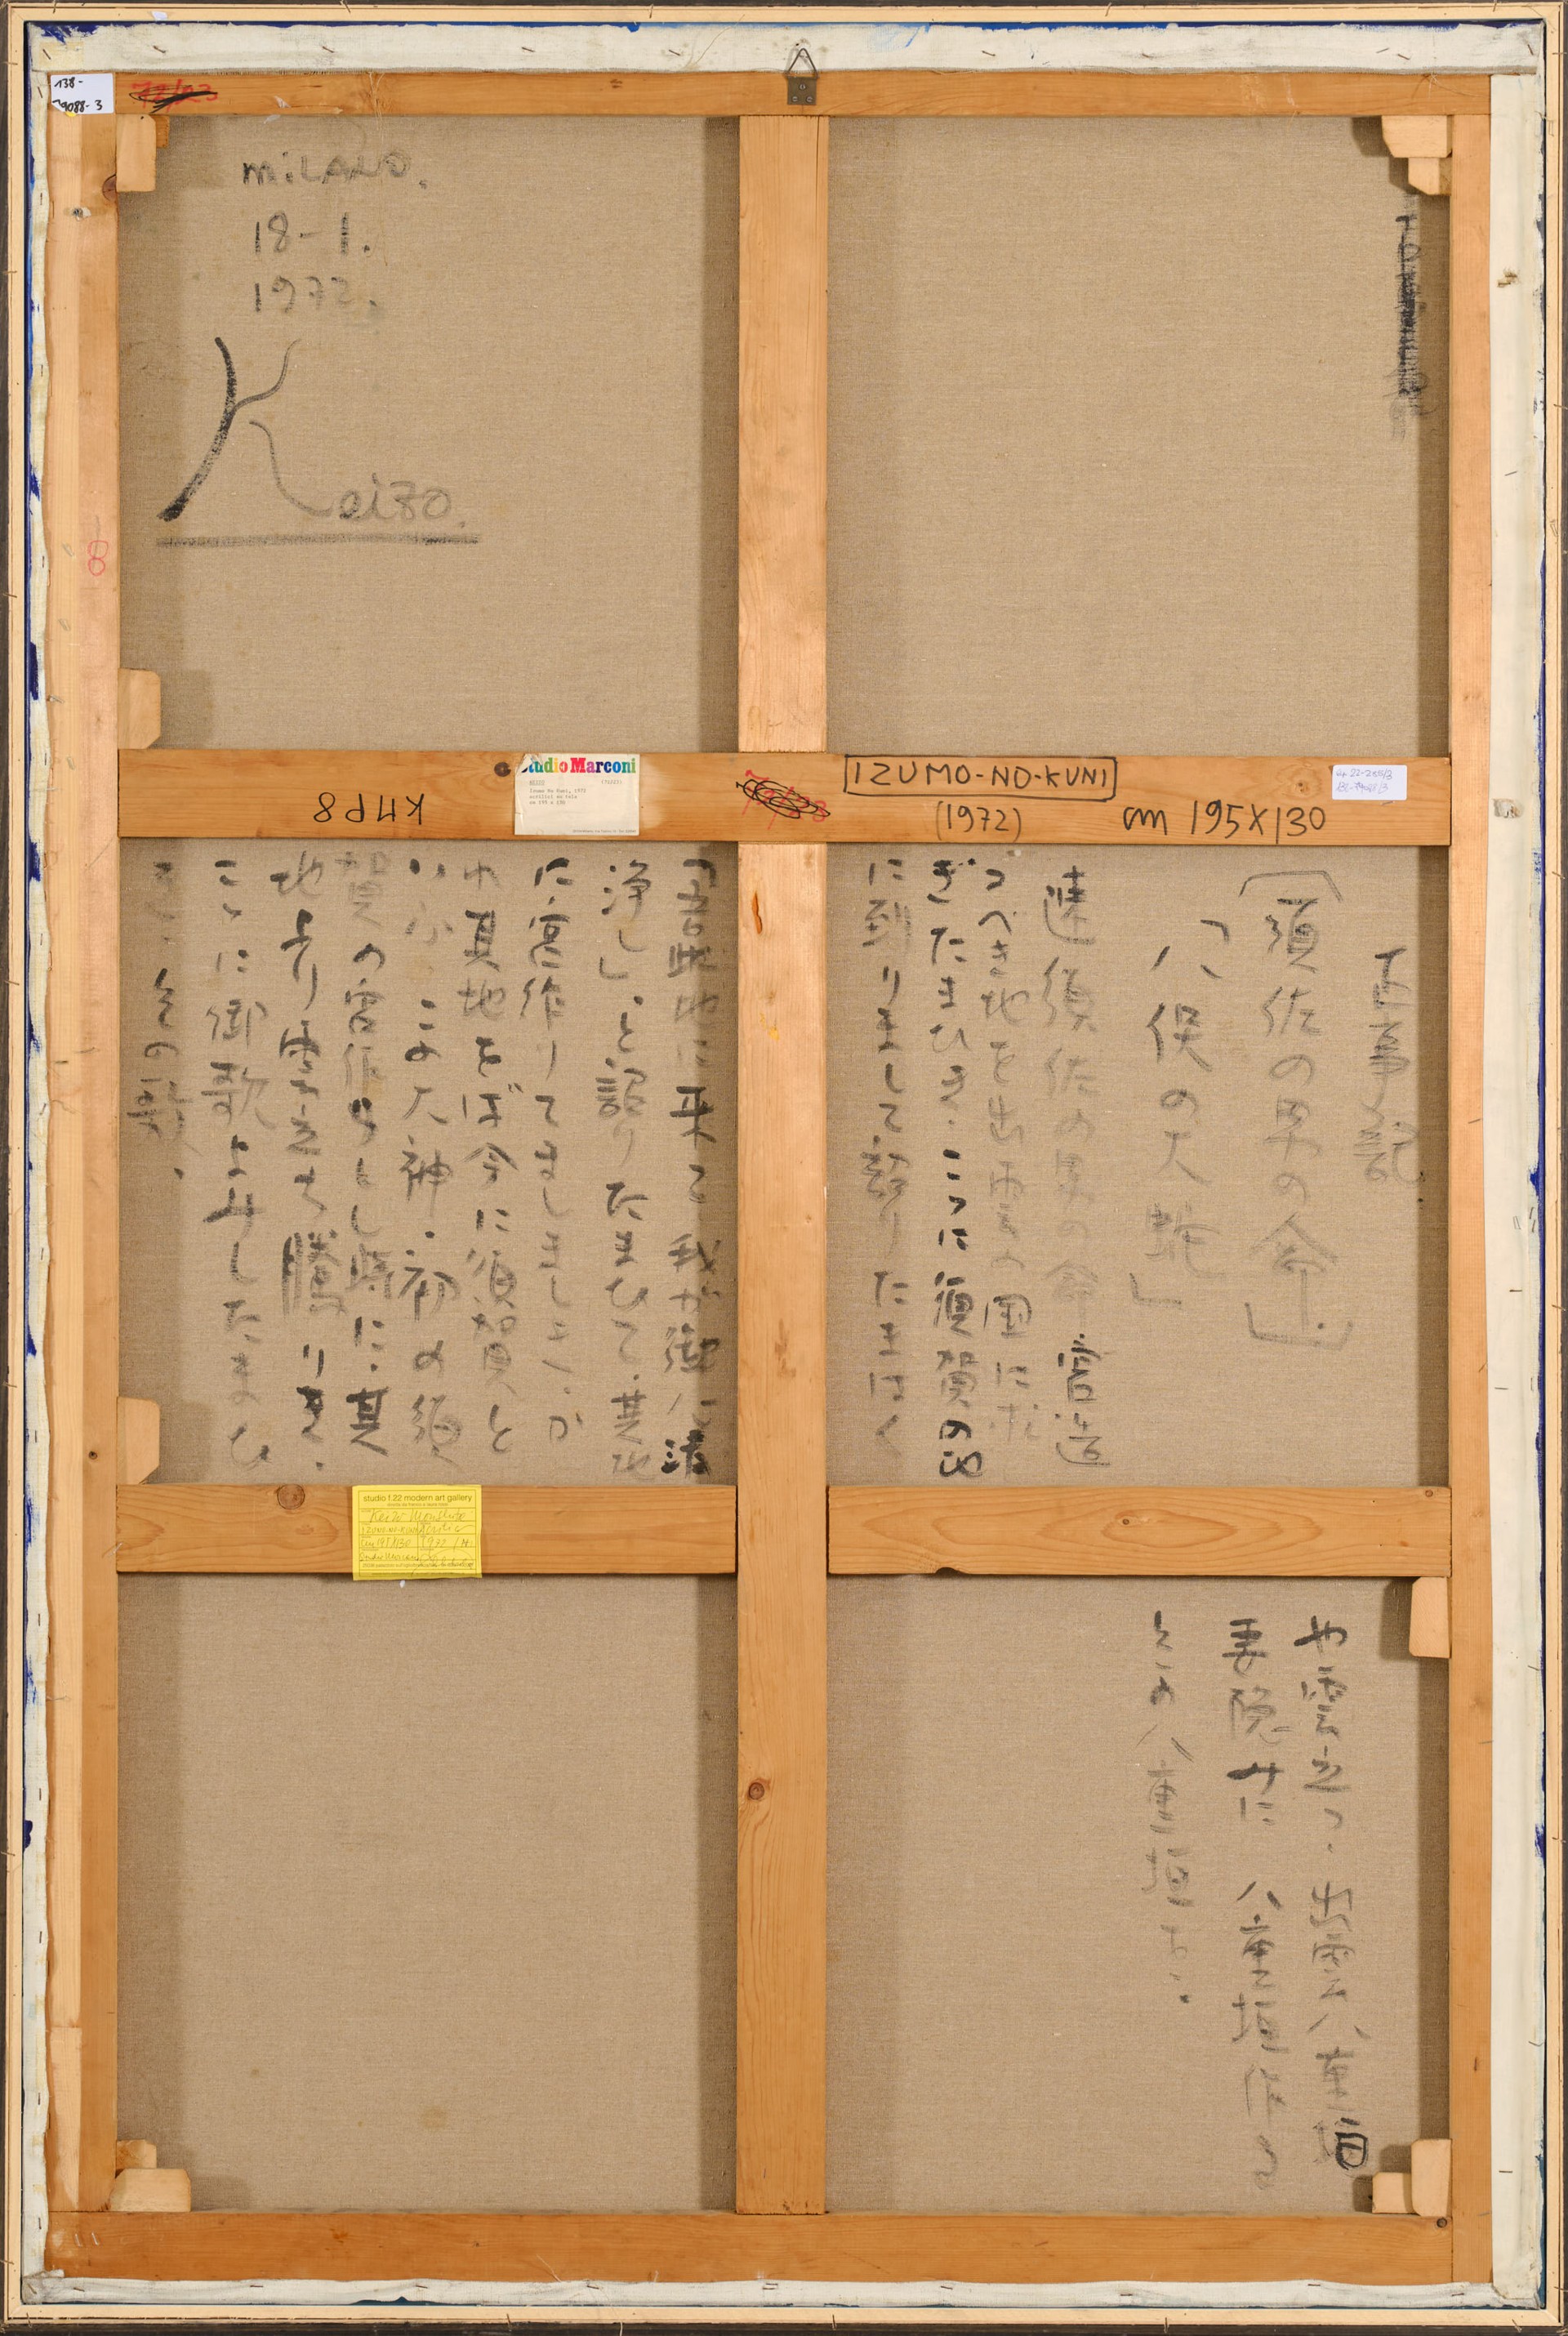 138-
79088-3
MiLANO.
18-1.
1972.
Keizo.
8
Studio Marconi
KMP8
IZUMO-NO-KUNI
(1972)
cm 195X130
古事記
〔須佐の男の命〕
「八俣の大蛇」
速須佐の男の命、宮造
つべき地を出雲の国に求
ぎたまひき。ここに須賀の地
に到りまして、詔りたまはく
「吾此地に来て我が御心清
浄し」と詔りたまひて、其地
に宮作りてましましき。か
れ其地をば今に須賀と
いふ。この大神、初め須
賀の宮作らしし時に、其
地より雲立ち騰りき。
ここに御歌よみしたまひ
き。その歌、
studio f.22 modern art gallery
Keizo Morishita
IZUMO-NO-KUNI
cm 195X130
1972
や雲立つ、出雲八重垣
妻隠みに 八重垣作る
その八重垣を。